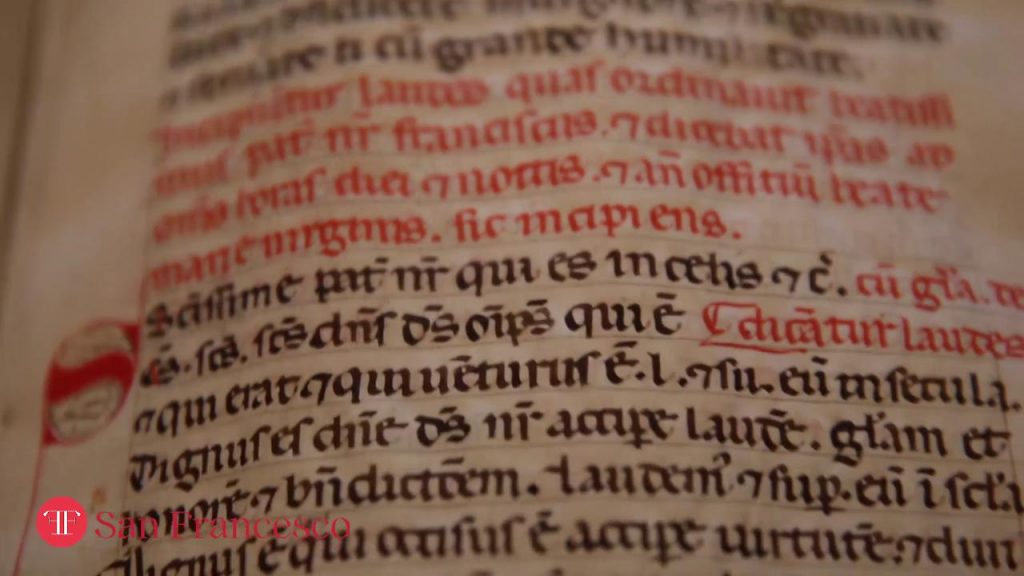 cū grande humilitate.
Incipiūtur laudes quas ordinauit beatissi
mus pat̄ nr̄ franciscus. ⁊ dicebat ip̄as ad
om̄s horas diei ⁊ noctis. ⁊ an̄ offitiū beate
marie uirginis. sic incipiens.
Scīssime pat̄ nr̄ qui es in celis ⁊ c̄. cū gl̄a. de
c̄s. sc̄s. sc̄s dn̄s ds̄ oīps̄ qui ē dicātur laudes
⁊ qui erat ⁊ qui uēturus ē. l. ⁊ su. eū in secula.
Dignus es dn̄e ds̄ nr̄ accipe laudē. gl̄am et
honorē ⁊ bn̄dictōem. laudem ⁊ sup. eū ī scl̄a
Dignus ē qui occisus ē accipe uirtutē. ⁊ diui
San Francesco